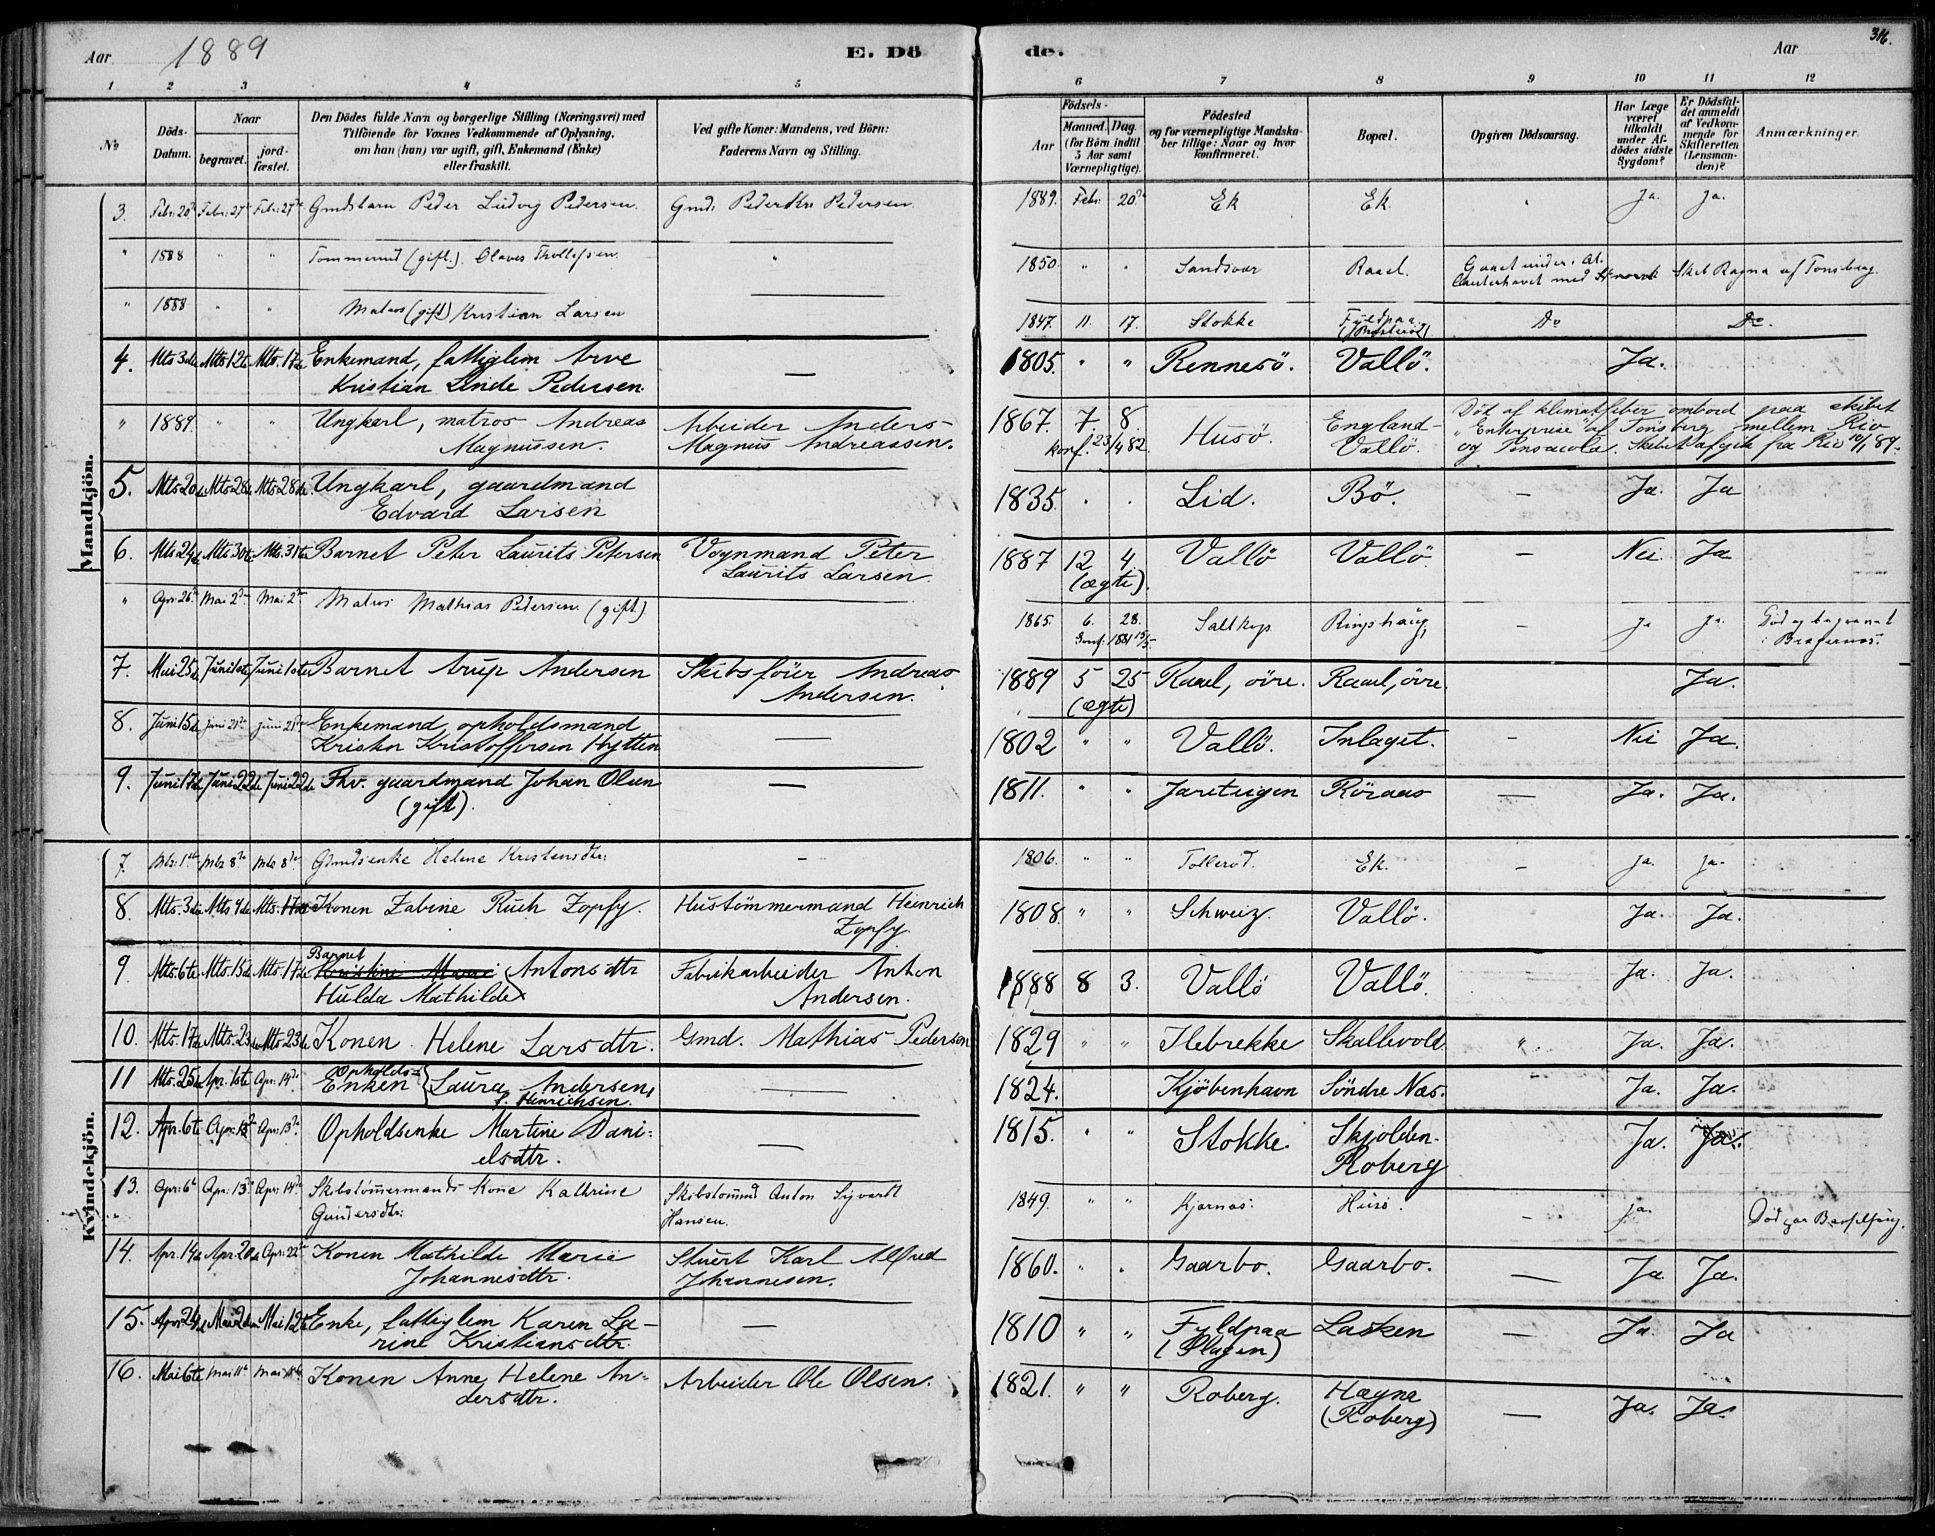 Aar 1889 E. Döde. Aar 316.
1 2 3 4 5 6 7 8 9 10 11 12
No
Döds-Datum.
Naar
begravet.
jord-fæstet.
Den Dödes fulde Navn og borgerlige Stilling (Næringsvei) med
Tilföiende for Voxnes Vedkommende af Oplysning,
om han (hun) var ugift, gift, Enkemand (Enke)
eller fraskilt.
Ved gifte Koner: Mandens, ved Börn:
Faderens Navn og Stilling.
Födsels-
Aar
Maaned. Dag.
(for Börn indtil
5 Aar samt
Værnepligtige).
Födested
og for værnepligtige Mandska-
ber tillige: Naar og hvor
konfirmeret.
Bopæl.
Opgiven Dödsaarsag.
Har Læge
været
tilkaldt
under Af-
dödes sidste
Sygdom?
Er Dödsfal-
det anmeldt
af Vedkom-
mende for
Skifteretten
(Lensman-
den)?
Anmærkninger.
Mandkjön.
3. Febr. 20de Febr. 27de Febr. 27de Gmdsbarn Peder Ludvig Pedersen. Gmd. Peder Pedersen 1889. Febr. 20de Ek Ek. Ja. Ja.
" 1888 " " Tømmermd (gift.) Olaves Thollefsen. 1850. " " Sandsvær Raael. Gaaet under i At-
lanterhavet med Skibet Ragna af Tønsberg.
" 1888 " " Matros (gift) Kristian Larsen 1847. 11. 17. Stokke Fyldpaa Do Do.
4. Mts 3de Mts 12te Mts. 17de Enkemand, fattiglem Arve
Kristian Linde Pedersen. — 1805. " " Rennesö. Vallö. Ja.
" 1889. " " Ungkarl, matros Andreas
Magnussen. Arbeider Anders
Magnus Andreassen. 1867. 7. 8. konf. 23/4 82. Husö. England-
Vallö. Död af klimatfeber ombord paa skibet
"Enterprise" af Tønsberg mellem Rio
og Pensacola. Skibet afgik fra Rio 10/1 89.
5. Mts 20de Mts 28de Mts 28de Ungkarl, gaardmand
Edvard Larsen 1835. " " Lid. Bö. — Ja. Ja
6. Mts 24de Mts. 30te Mts. 31te Barnet Peter Laurits Petersen Vognmand Peter
Laurits Larsen. 1887 12 4. (ægte). Vallö Vallö. — Nei. Ja
" Apr. 26de Mai 2den Mai 2den Matros Mathias Pedersen. (gift) 1865. 6. 28. Saltkop Ringshaug, — ja ja. Död og begravet
i Bragernæs.
7. Mai 25de Juni 1ste Juni 1ste Barnet Arup Andersen Skibsförer Andreas
Andersen. 1889 5 25 (ægte) Raael, övre. Raael, övre. Ja.
8. Juni 15de Juni 21de Juni 21de Enkemand opholdsmand
Krister Kristoffersen Hytten — 1802 " " Vallö. Inlaget. — Nei Ja.
9. Juni 17de Juni 22de Juni 22de Fhv. gaardmand Johan Olsen
(gift). — 1811. " " Jareteigen Röraas — Ja. Ja.
Kvindekjön.
7. Mts. 1ste Mts 8de Mts 8de Gmdsenke Helene Kristensdtr. — 1806. " " Tolleröd. Ek. — ja. ja.
8. Mts. 3de Mts 9de Mts. 17de Konen Zabine Ruch Zopfy. Hustömmermand Heinrich
Zopfy. 1808. " " Schweiz. Vallö. Ja. Ja.
9 Mts. 6te Mts. 15de Mts. 17de Barnet
Kristine Marie Antonsdtr
Hulda Mathilde Fabrikarbeider Anton
Andersen. 1888 8 3. Vallö Vallö. Ja. Ja.
10. Mts. 17de Mts. 23de Mts. 23de Konen Helene Larsdtr. Gmd. Mathias Pedersen 1829 " " Ilebrekke Skallevold " Ja. Ja.
11 Mts. 25de Apr. 1ste Apr. 14de Opholds-
Enken Laura Andersen,
f. Henrichsen. — 1824. Kjöbenhavn Söndre Næs. Ja. Ja.
12. Apr. 6te Apr. 13de Apr. 13de Opholdsenke Martine Dani-
elsdtr. — 1815. " " Stokke. Skjolden-
Roberg Ja. Ja.
13. Apr. 6te Apr. 13de Apr. 14de Skibstömmermands Kone Kathrine
Gundersdtr. Skibstömmd Anton Syvertt
Hansen. 1849. " " Kjærnæs. Husö. — ja. Död paa Barselseng.
14. Apr. 14de Apr. 20de Apr. 22de Konen Mathilde Marie
Johannesdtr. Stuert Karl Alfred
Johannesen. 1860. " " Gaarbo. Gaarbo. — Ja. Ja.
15. Apr 24de Mai 2den Mai 12te Enke, fattiglem Karen La-
rine Kristiansdtr. — 1810 " " Fyldpaa
(Slagen) Lasken — Ja. Ja
16. Mai 6te Mai 11te Mai 11te Konen Anne Helene An-
dersdtr. Arbeider Ole Olsen. 1821. " " Roberg. Hagna
(Roberg) — Ja. Ja.